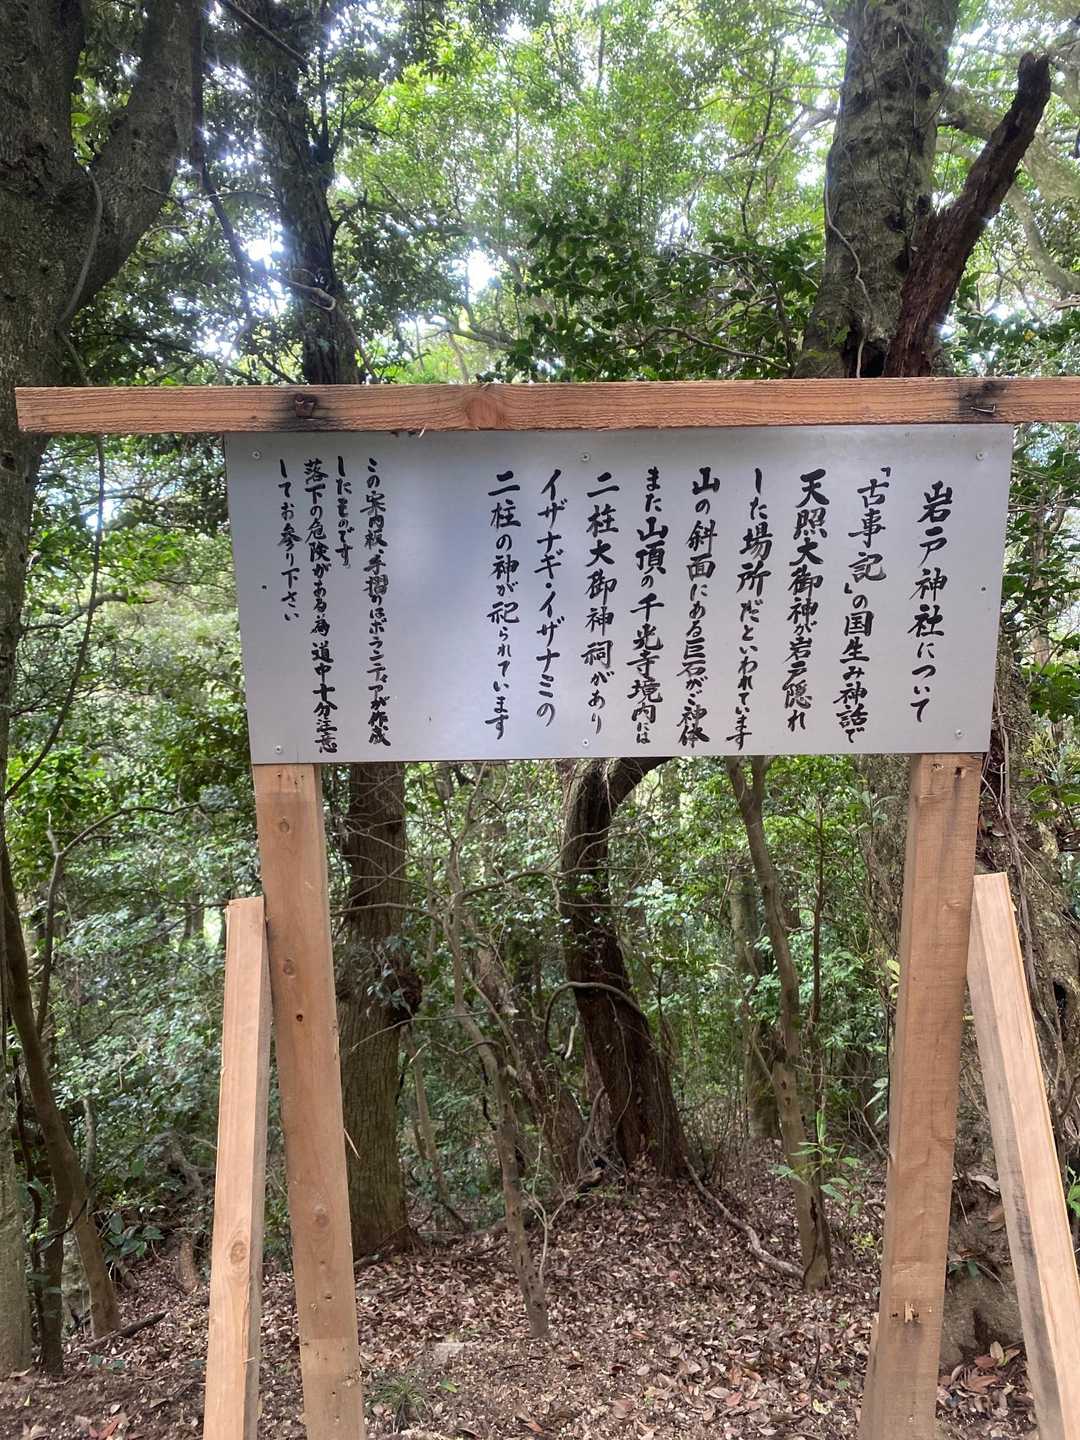 岩戸神社について
「古事記」の国生み神話で
天照大御神が岩戸隠れ
した場所だといわれています
山の斜面にある巨石がご神体
また山頂の千光寺境内には
二柱大御神祠があり
イザナギ・イザナミの
二柱の神が祀られています
この案内板、手摺りはボランティアが作成
したものです。
落下の危険がある為 道中十分注意
してお参り下さい